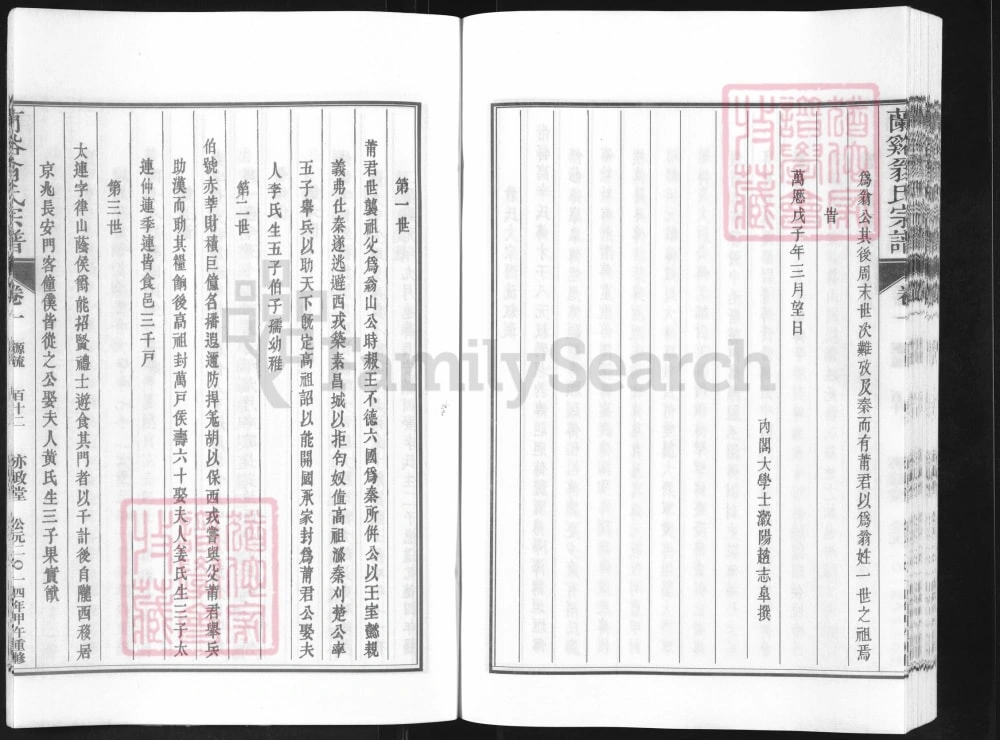 蘭谿翁氏宗譜
卷一
為翁公其後周末世次難攷及秦而有莆君以為翁姓一世之祖焉
旹
萬曆戊子年三月望日
內閣大學士瀫陽趙志皐撰
第一世
莆君世襲祖父為翁山公時赧王不德六國為秦所併公以王室懿親
義弗仕秦遂逃遊西戎築素昌城以拒匈奴值高祖滅秦刈楚公率
五子舉兵以助天下既定高祖詔以能開國承家封為莆君公娶夫
人李氏生五子伯子孺幼稚
第二世
伯號赤莘財積巨億名播遐邇防捍羌胡以保西戎嘗與父莆君舉兵
助漢而助其糧餉後高祖封萬戶侯壽六十娶夫人姜氏生三子太
連仲連季連皆食邑三千戶
第三世
太連字律山蔭侯爵能招賢禮士遊食其門者以千計後自隴西移居
京兆長安門客僮僕皆從之公娶夫人黃氏生三子果實猷
蘭谿翁氏宗譜
卷一
源流
百十二
亦政堂
公元二〇一四年甲午重修
FamilySearch